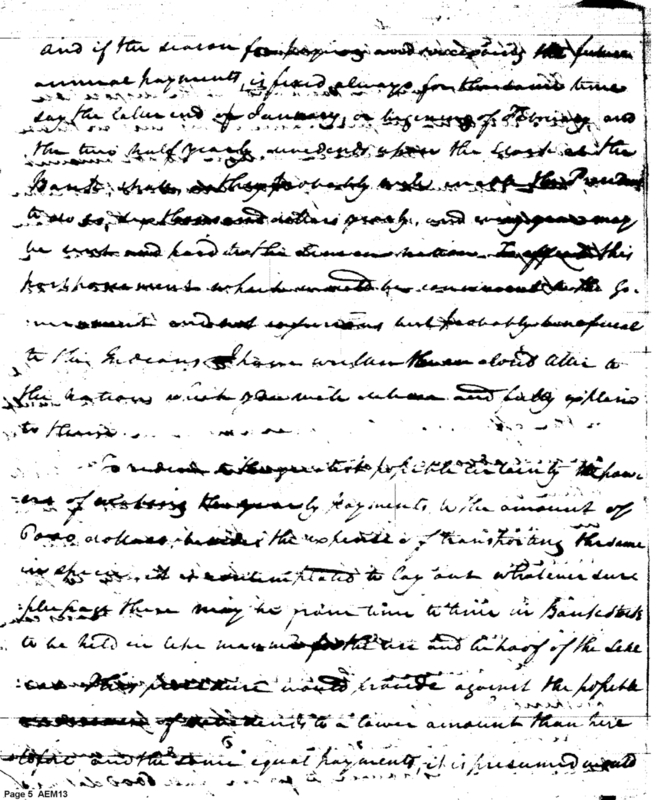 and if the season for paying and receiving the future
annual payments, is fixed always for the same time
say the latter end of January, or beginning of February and
the two half yearly dividends upon the stock at the
Bank shall as they probably will enable the President
to do so, six thousand dollars yearly, and every year may
be sent and paid to the Seneca nation. To effect this
postponement which would be convenient to the Go-
vernment and not injurious but probably beneficial
to the Indians I have written them about Attic to
the nation which you will deliver and fully explain
to them
To reduce to the greatest possible certainty the pow-
ers of making the yearly payments to the amount of
6000 dollars, besides the expense of transporting the same
in specie, it is contemplated to lay out whatever sur-
plusage there may be from time to time in Bank stock
to be held in like manner for the use and behoof of the Sene-
cas. This procedure would provide against the possible
of dividends to a lower amount than here
tofore and the same equal payments, it is presumed would
Page 5 AEM13